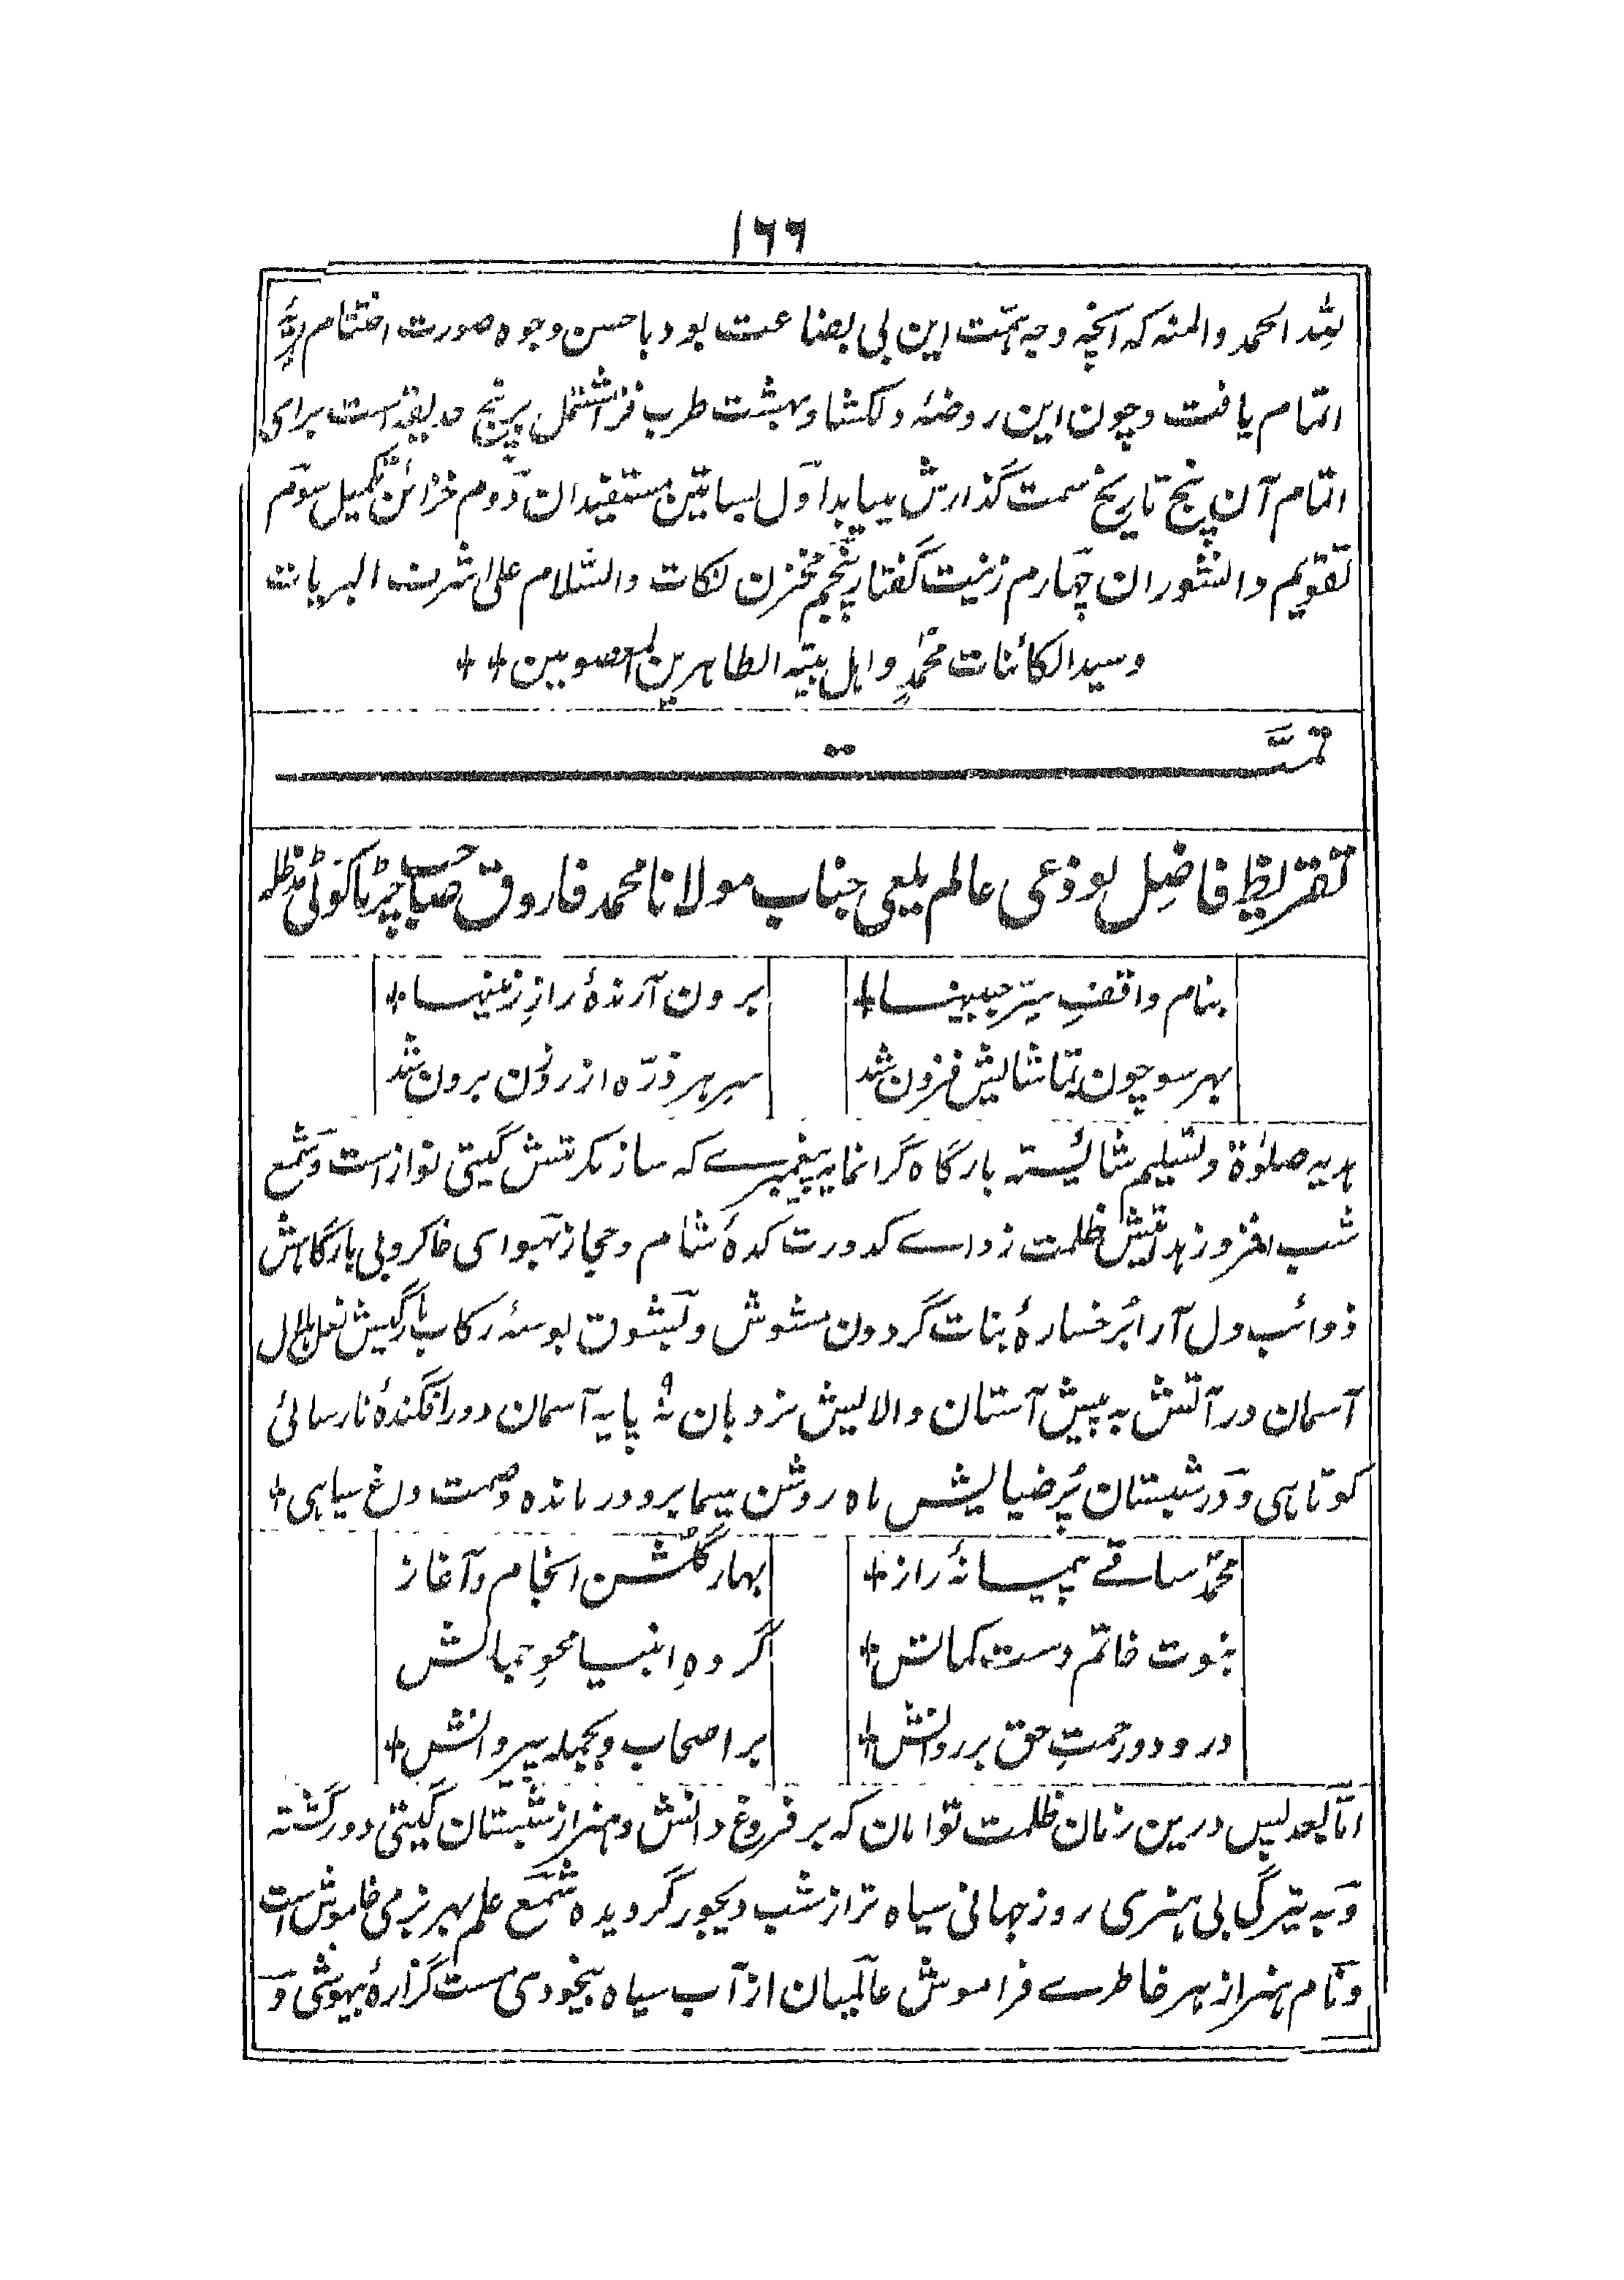 ۱۶۶
لله الحمد والمنه که آنچه وجه همّت این بی بضاعت بود باحسن وجوه صورت اختتام
اتمام یافت وچون این روضهٔ دلکشا وبهشت طرب فزا مشتمل بر پنج حدیقه است برای
اتمام آن پنج تاریخ سمت گذارش مییابد اوّل بساتین مستفیدان دوم خزائن تکمیل سوم
تقویم دانشوران چهارم زینت گفتار پنجم مخزن نکات والسّلام علی اشرف البریات
وسید الکائنات محمّدٍ واهل بیته الطاهرین المعصومین ++
تمّت
تقریظ فاضِل لوذعی عالم یلمعی جناب مولانا محمد فاروق صاحب چڑیاکوٹی مدظله
بنام واقفِ سِرّ جبینها +
برون آرندهٔ رازِ زمینها +
بهر سو چون تماشایش فزون شد
سرِ هر ذرّه از روزن برون شد
هدیه صلوٰة وتسلیم شائسته بارگاه گرانمایه پیغمبرے که ساز مکرمتش گیتی نواز است وشمع
شب افروز هدایتش ظلمت زداے کدورت کدهٔ شام وحجاز بهوای خاکروبی بارگاهش
ذوائب دل آرا بر رخسارهٔ بنات گردون مشوش وبشوق بوسهٔ رکاب بارگیش نعل هلال
آسمان در آتش به پیش آستان والایش نردبان نُه پایه آسمان دور افگندهٔ نارسائی
کوتاهی ودر شبستان پُر ضیایش ماه روشن سیما برو درمانده وصمت داغ سیاهی +
محمّد ساقے پیمانهٔ راز +
بهار گلشن انجام وآغاز
نبوت خاتم دست کمالش +
گروهِ انبیا محوِ جمالش
درود ورحمتِ حق بر روانش +
بر اصحاب وبجمله پیروانش +
امّا بعد پس درین زمان ظلمت توامان که بر فروغ دانش وهنر از شبستان گیتی دور گشته
وبه تیرگی بی هنری روز جهانی سیاه تر از شب دیجور گردیده شمع علم بهر بزمی خاموش است
ونام هنر از هر خاطرے فراموش عالمیان از آب سیاه بیخودی مست گزارهٔ بیهوشی و